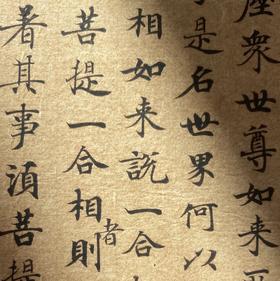 塵衆世尊如来
是名世界何以
相如来說一合
菩提一合相者則
著其事湏菩提